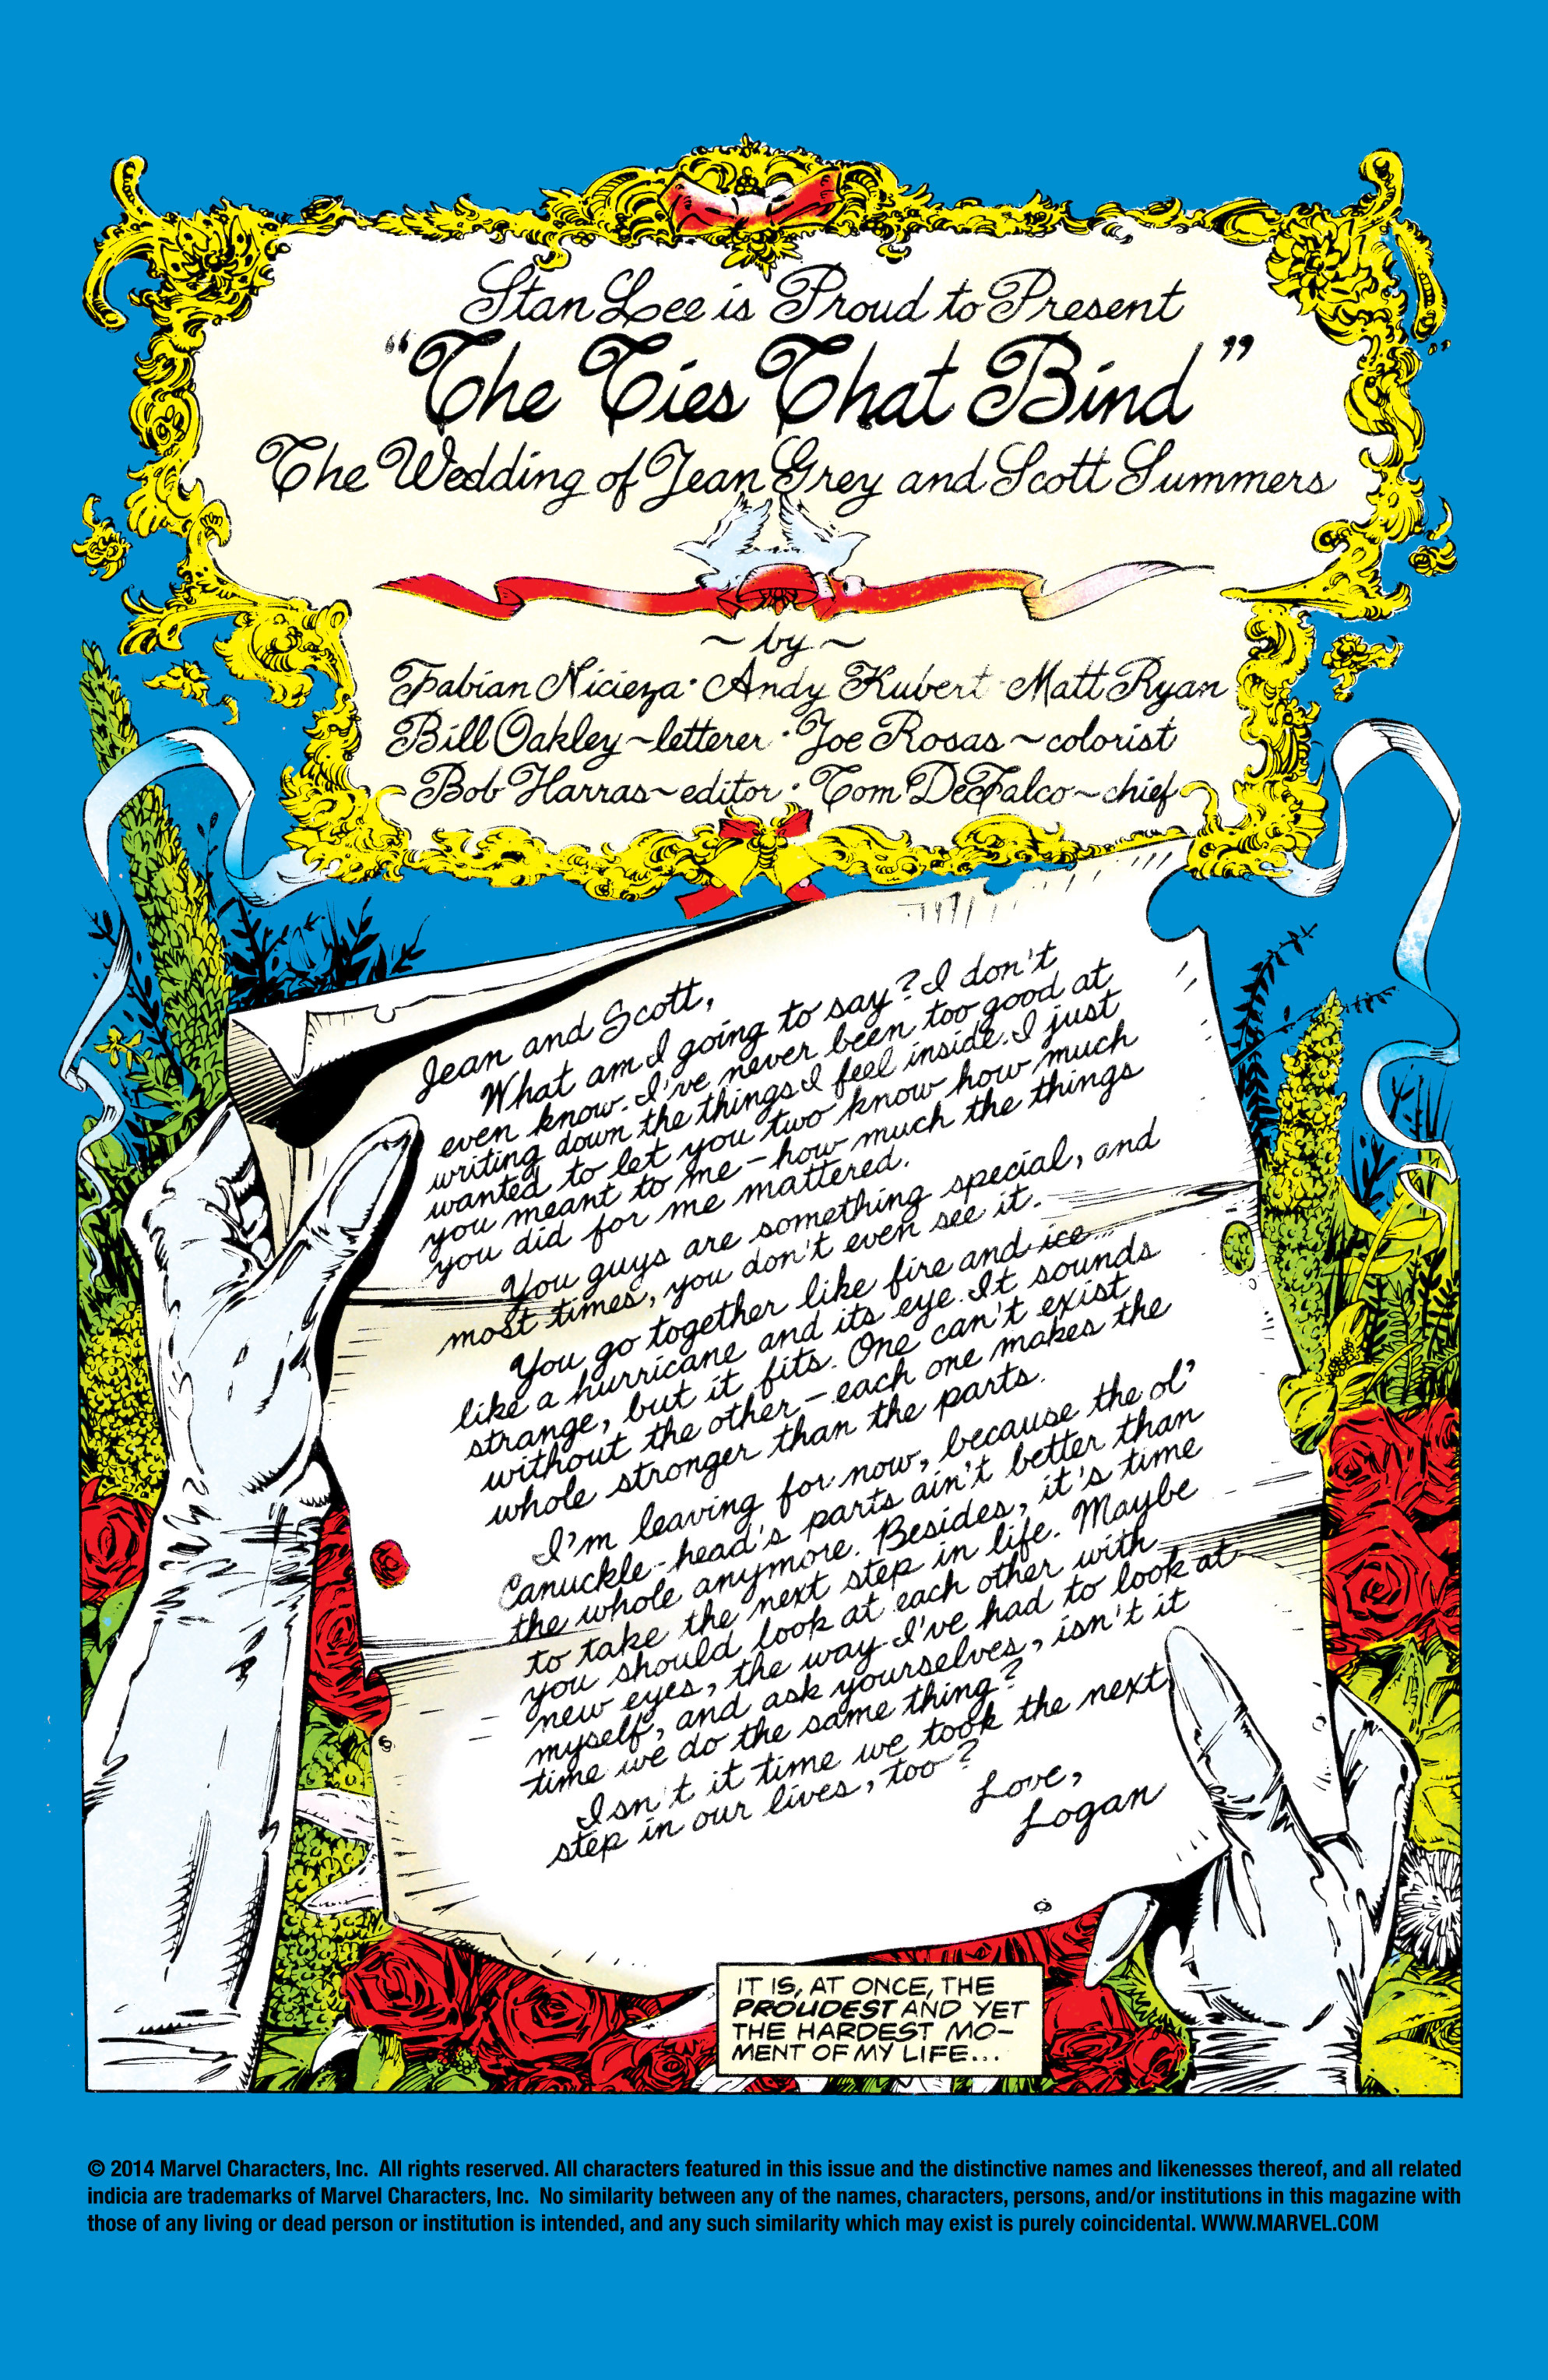 Stan Lee is Proud to Present
"The Ties That Bind"
The Wedding of Jean Grey and Scott Summers
~ by ~
Fabian Nicieza · Andy Kubert · Matt Ryan
Bill Oakley ~ letterer · Joe Rosas ~ colorist
Bob Harras ~ editor · Tom DeFalco ~ chief
Jean and Scott,
What am I going to say? I don't
even know. I've never been too good at
writing down the things I feel inside. I just
wanted to let you two know how much
you meant to me – how much the things
you did for me mattered.
You guys are something special, and
most times, you don't even see it.
You go together like fire and ice...
like a hurricane and its eye. It sounds
strange, but it fits. One can't exist
without the other – each one makes the
whole stronger than the parts.
I'm leaving for now, because the ol'
Canuckle-head's parts ain't better than
the whole anymore. Besides, it's time
to take the next step in life. Maybe
you should look at each other with
new eyes, the way I've had to look at
myself, and ask yourselves, isn't it
time we do the same thing?
Isn't it time we took the next
step in our lives, too?
Love,
Logan
IT IS, AT ONCE, THE
PROUDEST AND YET
THE HARDEST MO-
MENT OF MY LIFE...
© 2014 Marvel Characters, Inc. All rights reserved. All characters featured in this issue and the distinctive names and likenesses thereof, and all related
indicia are trademarks of Marvel Characters, Inc. No similarity between any of the names, characters, persons, and/or institutions in this magazine with
those of any living or dead person or institution is intended, and any such similarity which may exist is purely coincidental. WWW.MARVEL.COM